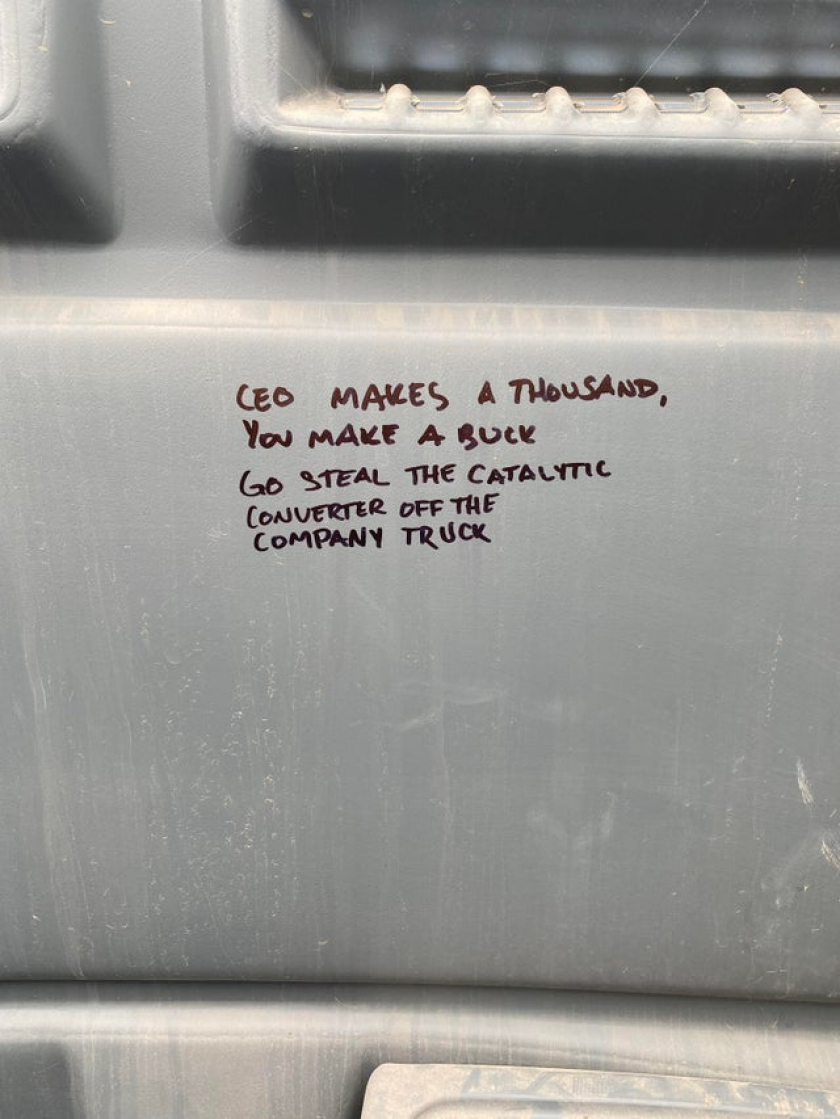 CEO MAKES A THOUSAND,
YOU MAKE A BUCK
GO STEAL THE CATALYTIC
CONVERTER OFF THE
COMPANY TRUCK